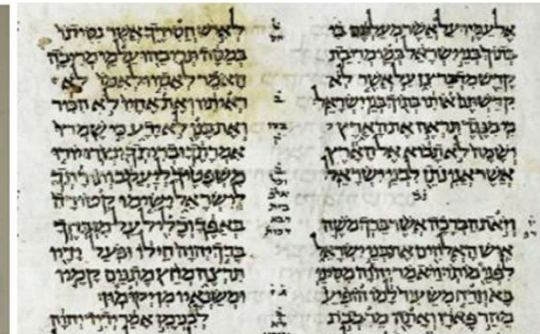 אל עמיו על אשר מעלתם בי
בתוך בני ישראל במי מריבת
קדש מדבר צן על אשר לא
קדשתם אותי בתוך בני ישראל
כי מנגד תראה את הארץ
ושמה לא תבוא אל הארץ
אשר אני נתן לבני ישראל
וזאת הברכה אשר ברך משה
איש האלהים את בני ישראל
לפני מותו ויאמר יהוה מסיני
בא וזרח משעיר למו הופיע
מהר פארן ואתה מרבבת
לאיש חסידך אשר נסיתו
במסה תריבהו על מי מריבה
האמר לאביו ולאמו לא
ראיתיו ואת אחיו לא הכיר
ואת בנו לא ידע כי שמרו
אמרתך ובריתך ינצרו יורו
משפטיך ליעקב ותורתך
לישראל ישימו קטורה
באפך וכליל על מזבחך
ברך יהוה חילו ופעל ידיו
תרצה מחץ מתנים קמיו
ומשנאיו מן יקומון
לבנימן אמר ידיד יהוה